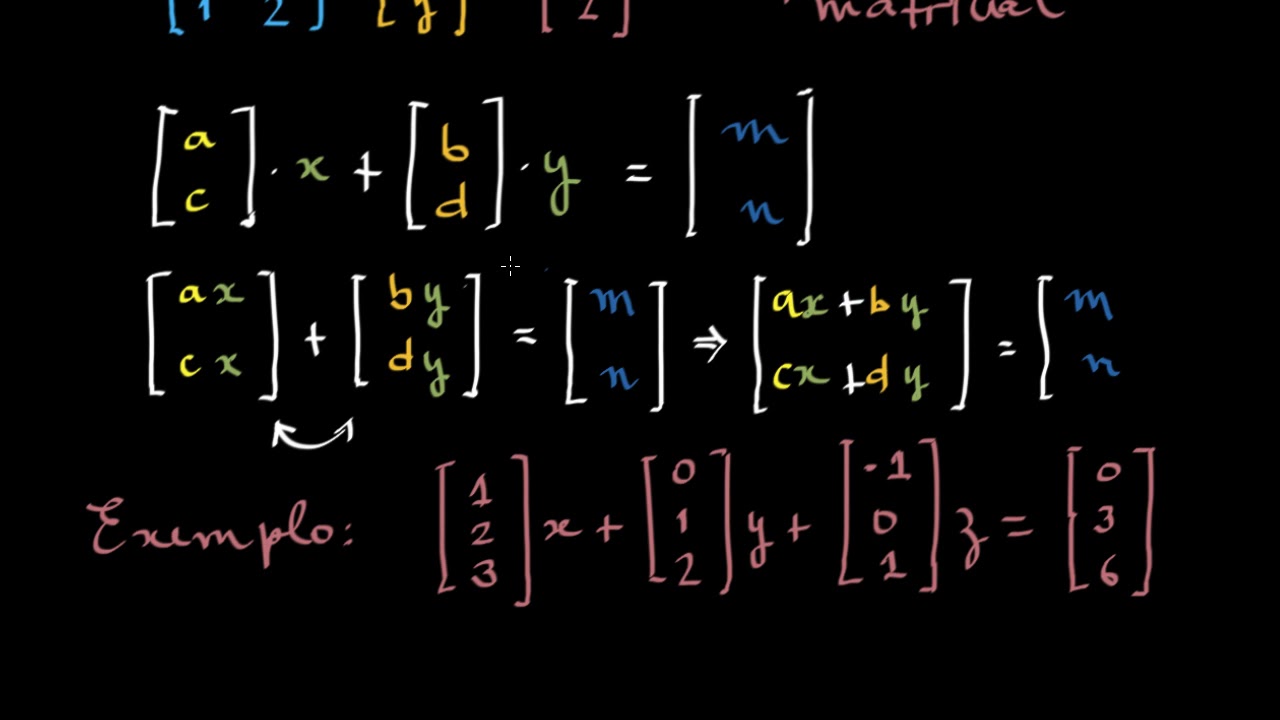 [1 2] [y] [2] matricial
[a c] · x + [b d] · y = [m n]
[ax cx] + [by dy] = [m n] ⇒ [ax + by cx + dy] = [m n]
Exemplo: [1 2 3] x + [0 1 2] y + [-1 0 1] z = [0 3 6]